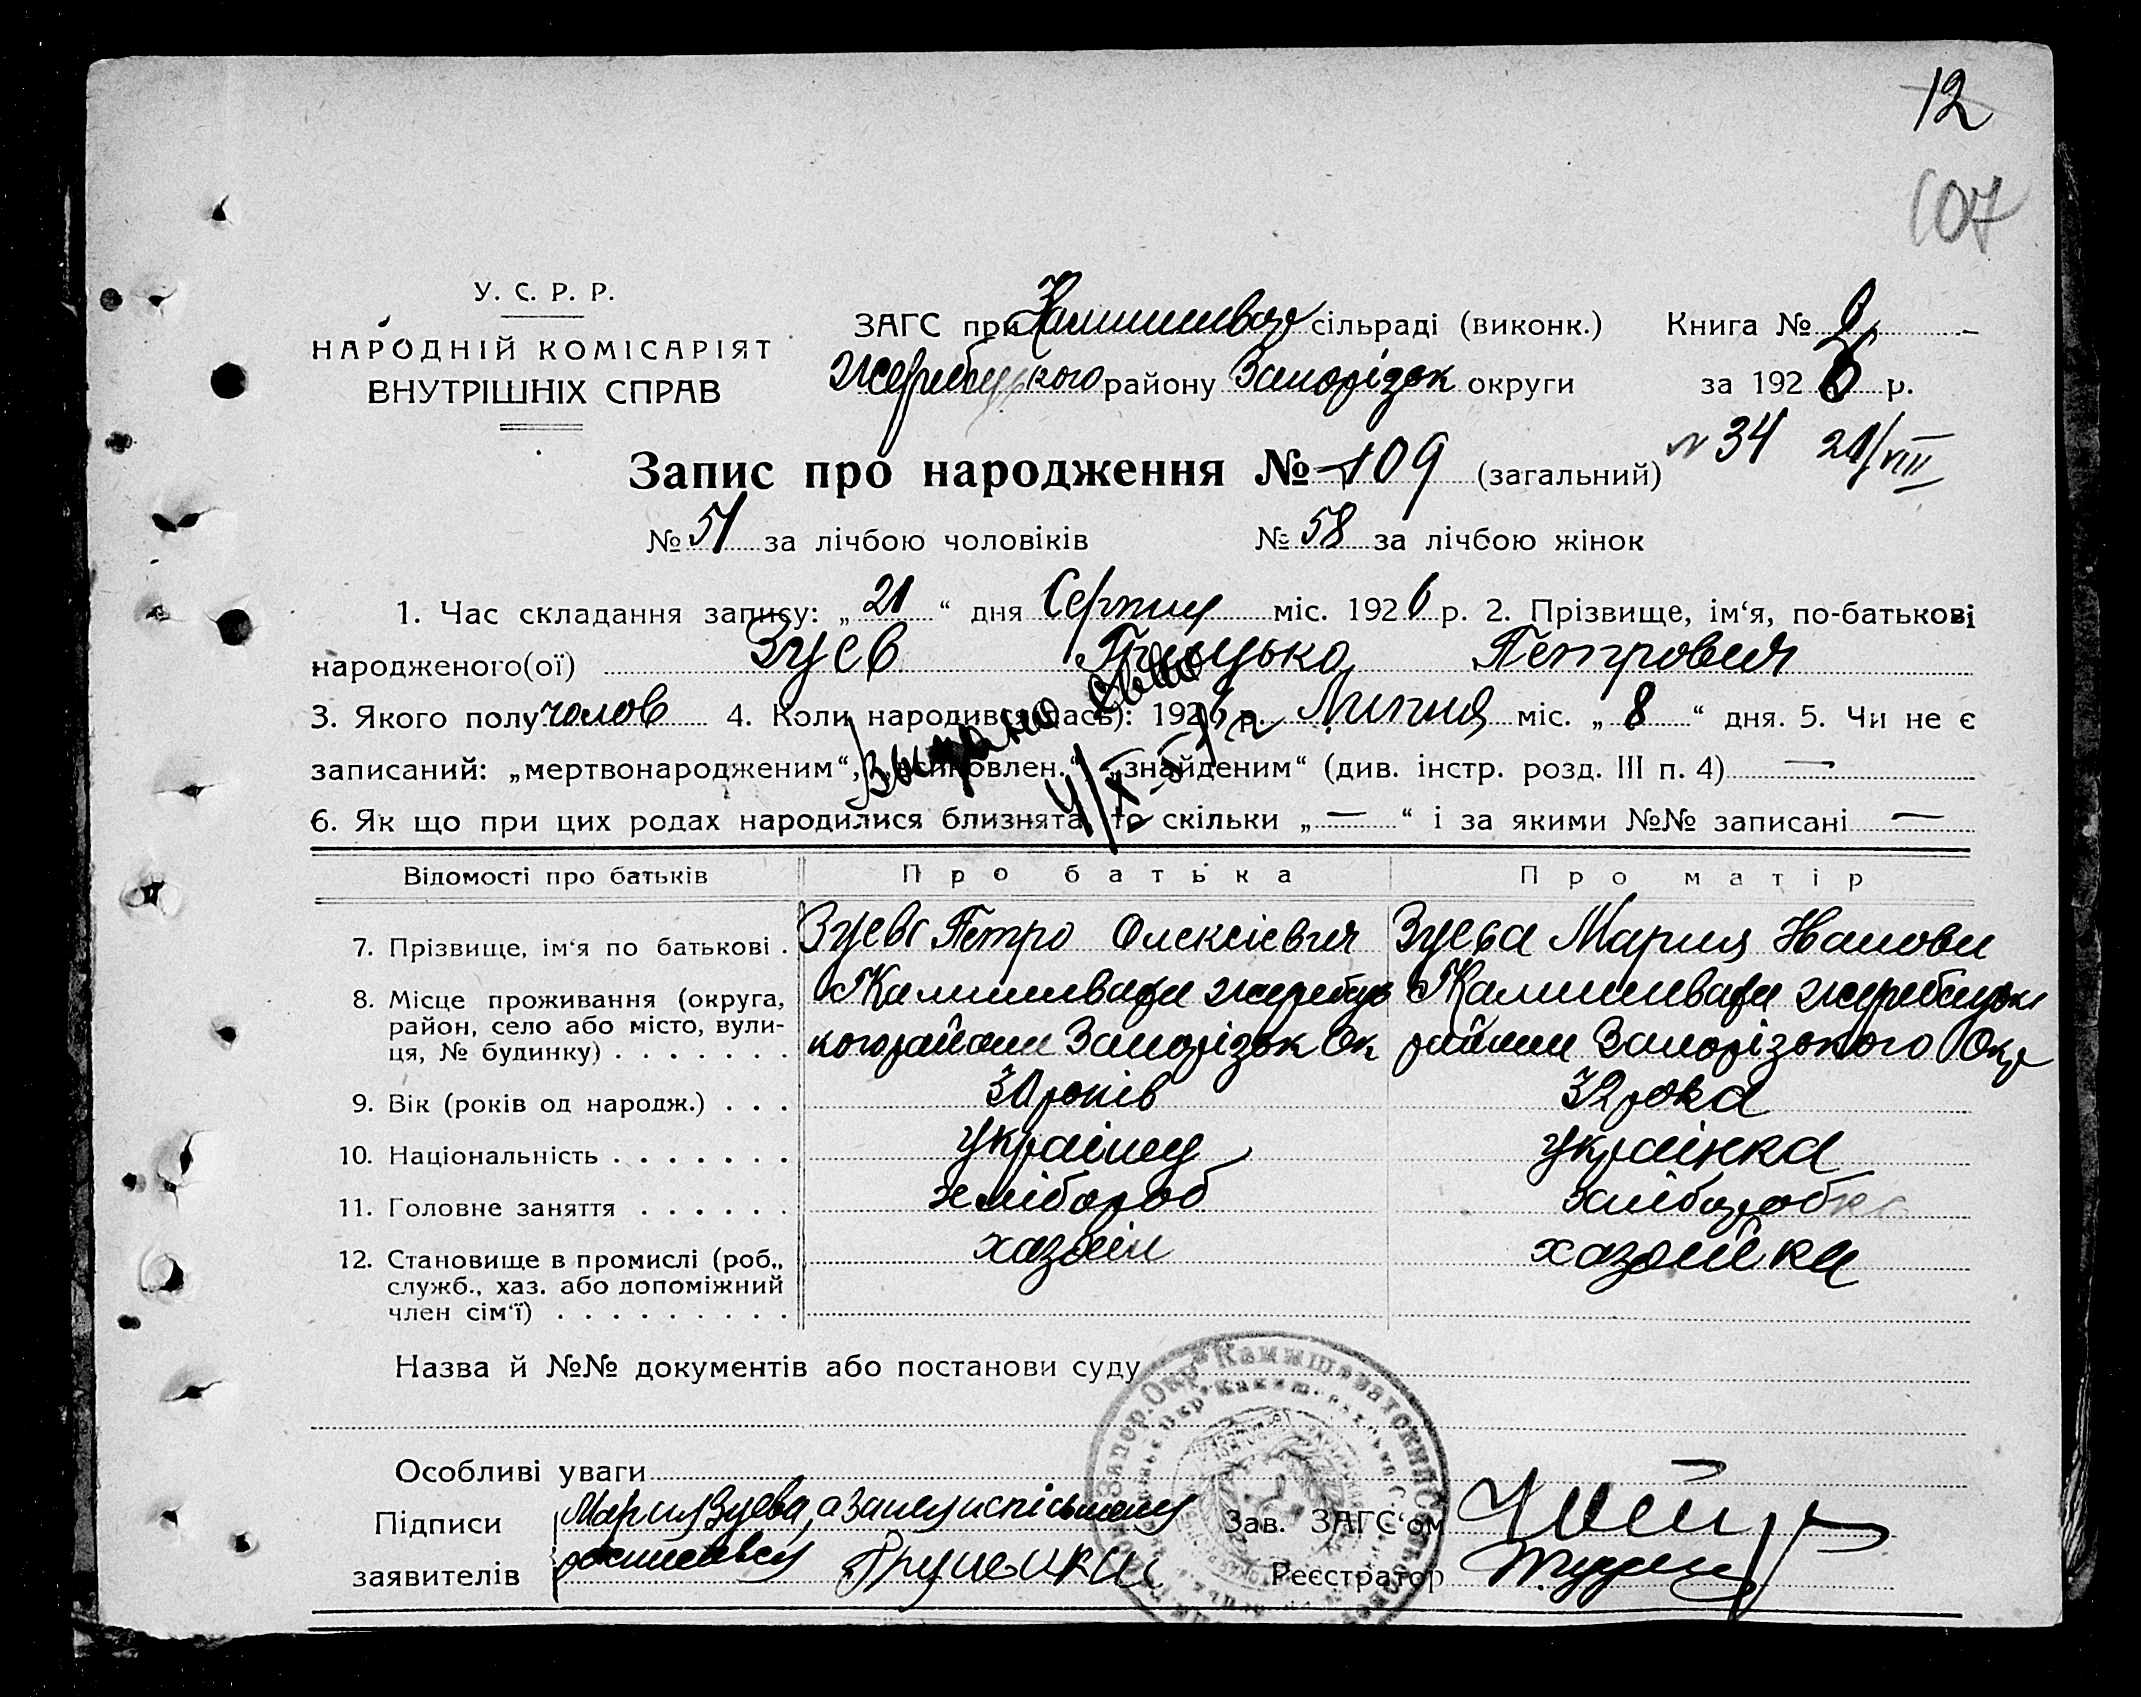 12
107
У. С. Р. Р.
НАРОДНІЙ КОМІСАРІЯТ
ВНУТРІШНІХ СПРАВ
ЗАГС при сільраді (виконк.) Книга №
району Запорізьк округи за 1926 р.
Запис про народження № 109 (загальний) № 34 21/VIII
№ 51 за лічбою чоловіків № 58 за лічбою жінок
1. Час складання запису: „21“ дня Серпня міс. 1926 р. 2. Прізвище, ім‘я, по-батькові
народженого(ої) Зуев Грицько Петрович
3. Якого полу чолов 4. Коли народився(лась): 1926 р. Липня міс. „8“ дня. 5. Чи не є
записаний: „мертвонародженим“, „усиновлен.“ „знайденим“ (див. інстр. розд. III п. 4) —
6. Як що при цих родах народилися близнята, то скільки „—“ і за якими №№ записані —
Відомості про батьків Про батька Про матір
7. Прізвище, ім‘я по батькові . Зуев Петро Олексієвич Зуева Мария Иванови
8. Місце проживання (округа,
район, село або місто, вули-
ця, № будинку) . . . . . . . Запорізьк Ок Запорізького Окр
9. Вік (років од народж.) . . . 30 років 32 рока
10. Національність . . . . . . . українц українка
11. Головне заняття . . . . . . хлібороб хліборобка
12. Становище в промислі (роб.,
служб., хаз. або допоміжний
член сім‘ї) . . . . . . . . . хазяін хазяйка
Назва й №№ документів або постанови суду
Особливі уваги
Підписи Мария Зуева, а за неи Зав. ЗАГС‘ом
заявителів Реєстратор